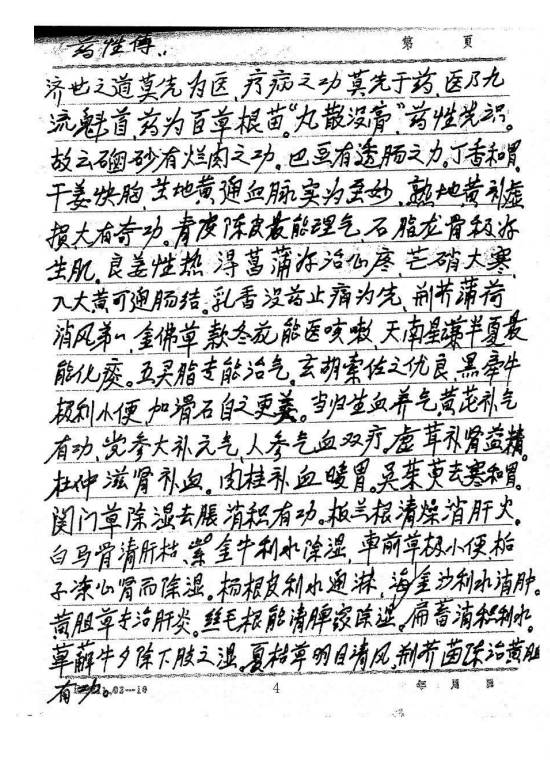 药性傅.. 第 页
济世之道莫先为医,疗病之功莫先于药,医乃九
流魁首,药为百草根苗。“丸散没膏”药性先识。
故云硇砂有烂肉之功,巴豆有透肠之力。丁香和胃,
干姜快胸,生地黄通血脉实为至妙,熟地黄补虚
损大有奇功。青皮陈皮最能理气,石脂龙骨极好
生肌,良姜性热 浔菖蒲好治心疼,芒硝大寒,
入大黄可通肠结。乳香没药止痛为先,荆芥薄荷
消风第一,金佛草款冬花能医咳嗽,天南星 半夏最
能化痰。五灵脂专能治气,玄胡索佐之优良,黑牵牛
极利小便 加滑石自之更美。当归生血养气,黄芪补气
有功,党参大补元气,人参气血双疗。虚茸补肾益精。
杜仲滋肾补血。肉桂补血暖胃。吴茱萸去寒和胃。
関门草除湿去胀消积有功。板兰根清燥消肝火。
白马骨清肝枯,紫金牛利水除湿,车前草极小便栀
子凉心肾而除湿。杨根皮利水通淋,海金沙利水消肿。
黄胆草专治肝炎。丝毛根能清脾家除湿,扁畜消积利水。
萆薢牛夕除下肢之湿。夏枯草明目清风。荆芥茵陈治黄胆
有功。 02—10 4 年 月 日